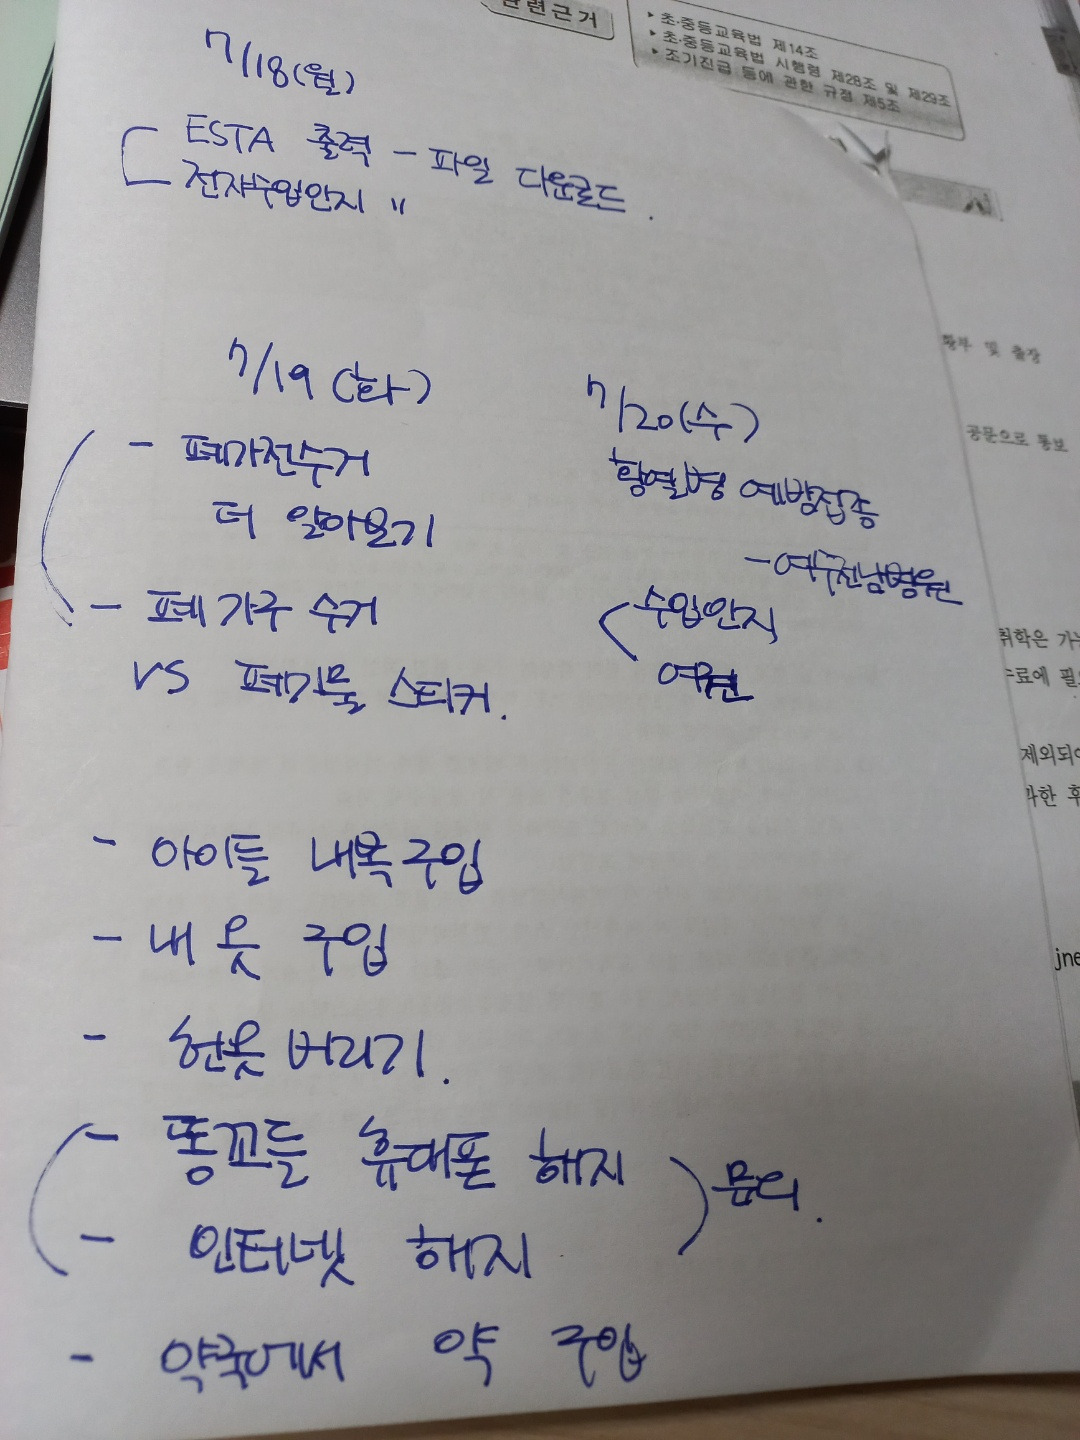 관련근거
▸ 초·중등교육법 제14조
▸ 초·중등교육법 시행령 제28조 및 제29조
▸ 조기진급 등에 관한 규정 제5조
7/18(월)
ESTA 출력 - 파일 다운로드.
전자수입인지 "
7/19 (화)
- 폐가전수거
더 알아보기
- 폐가구 수거
vs 폐기물 스티커.
7/20(수)
황열병 예방접종
- 여수전남병원
수입인지
여권
- 아이들 내복구입
- 내 옷 구입
- 헌옷 버리기.
- 똥꼬들 휴대폰 해지
- 인터넷 해지
문의.
- 약국에서 약 구입
및 출장
공문으로 통보
취학은
제외되어
jne